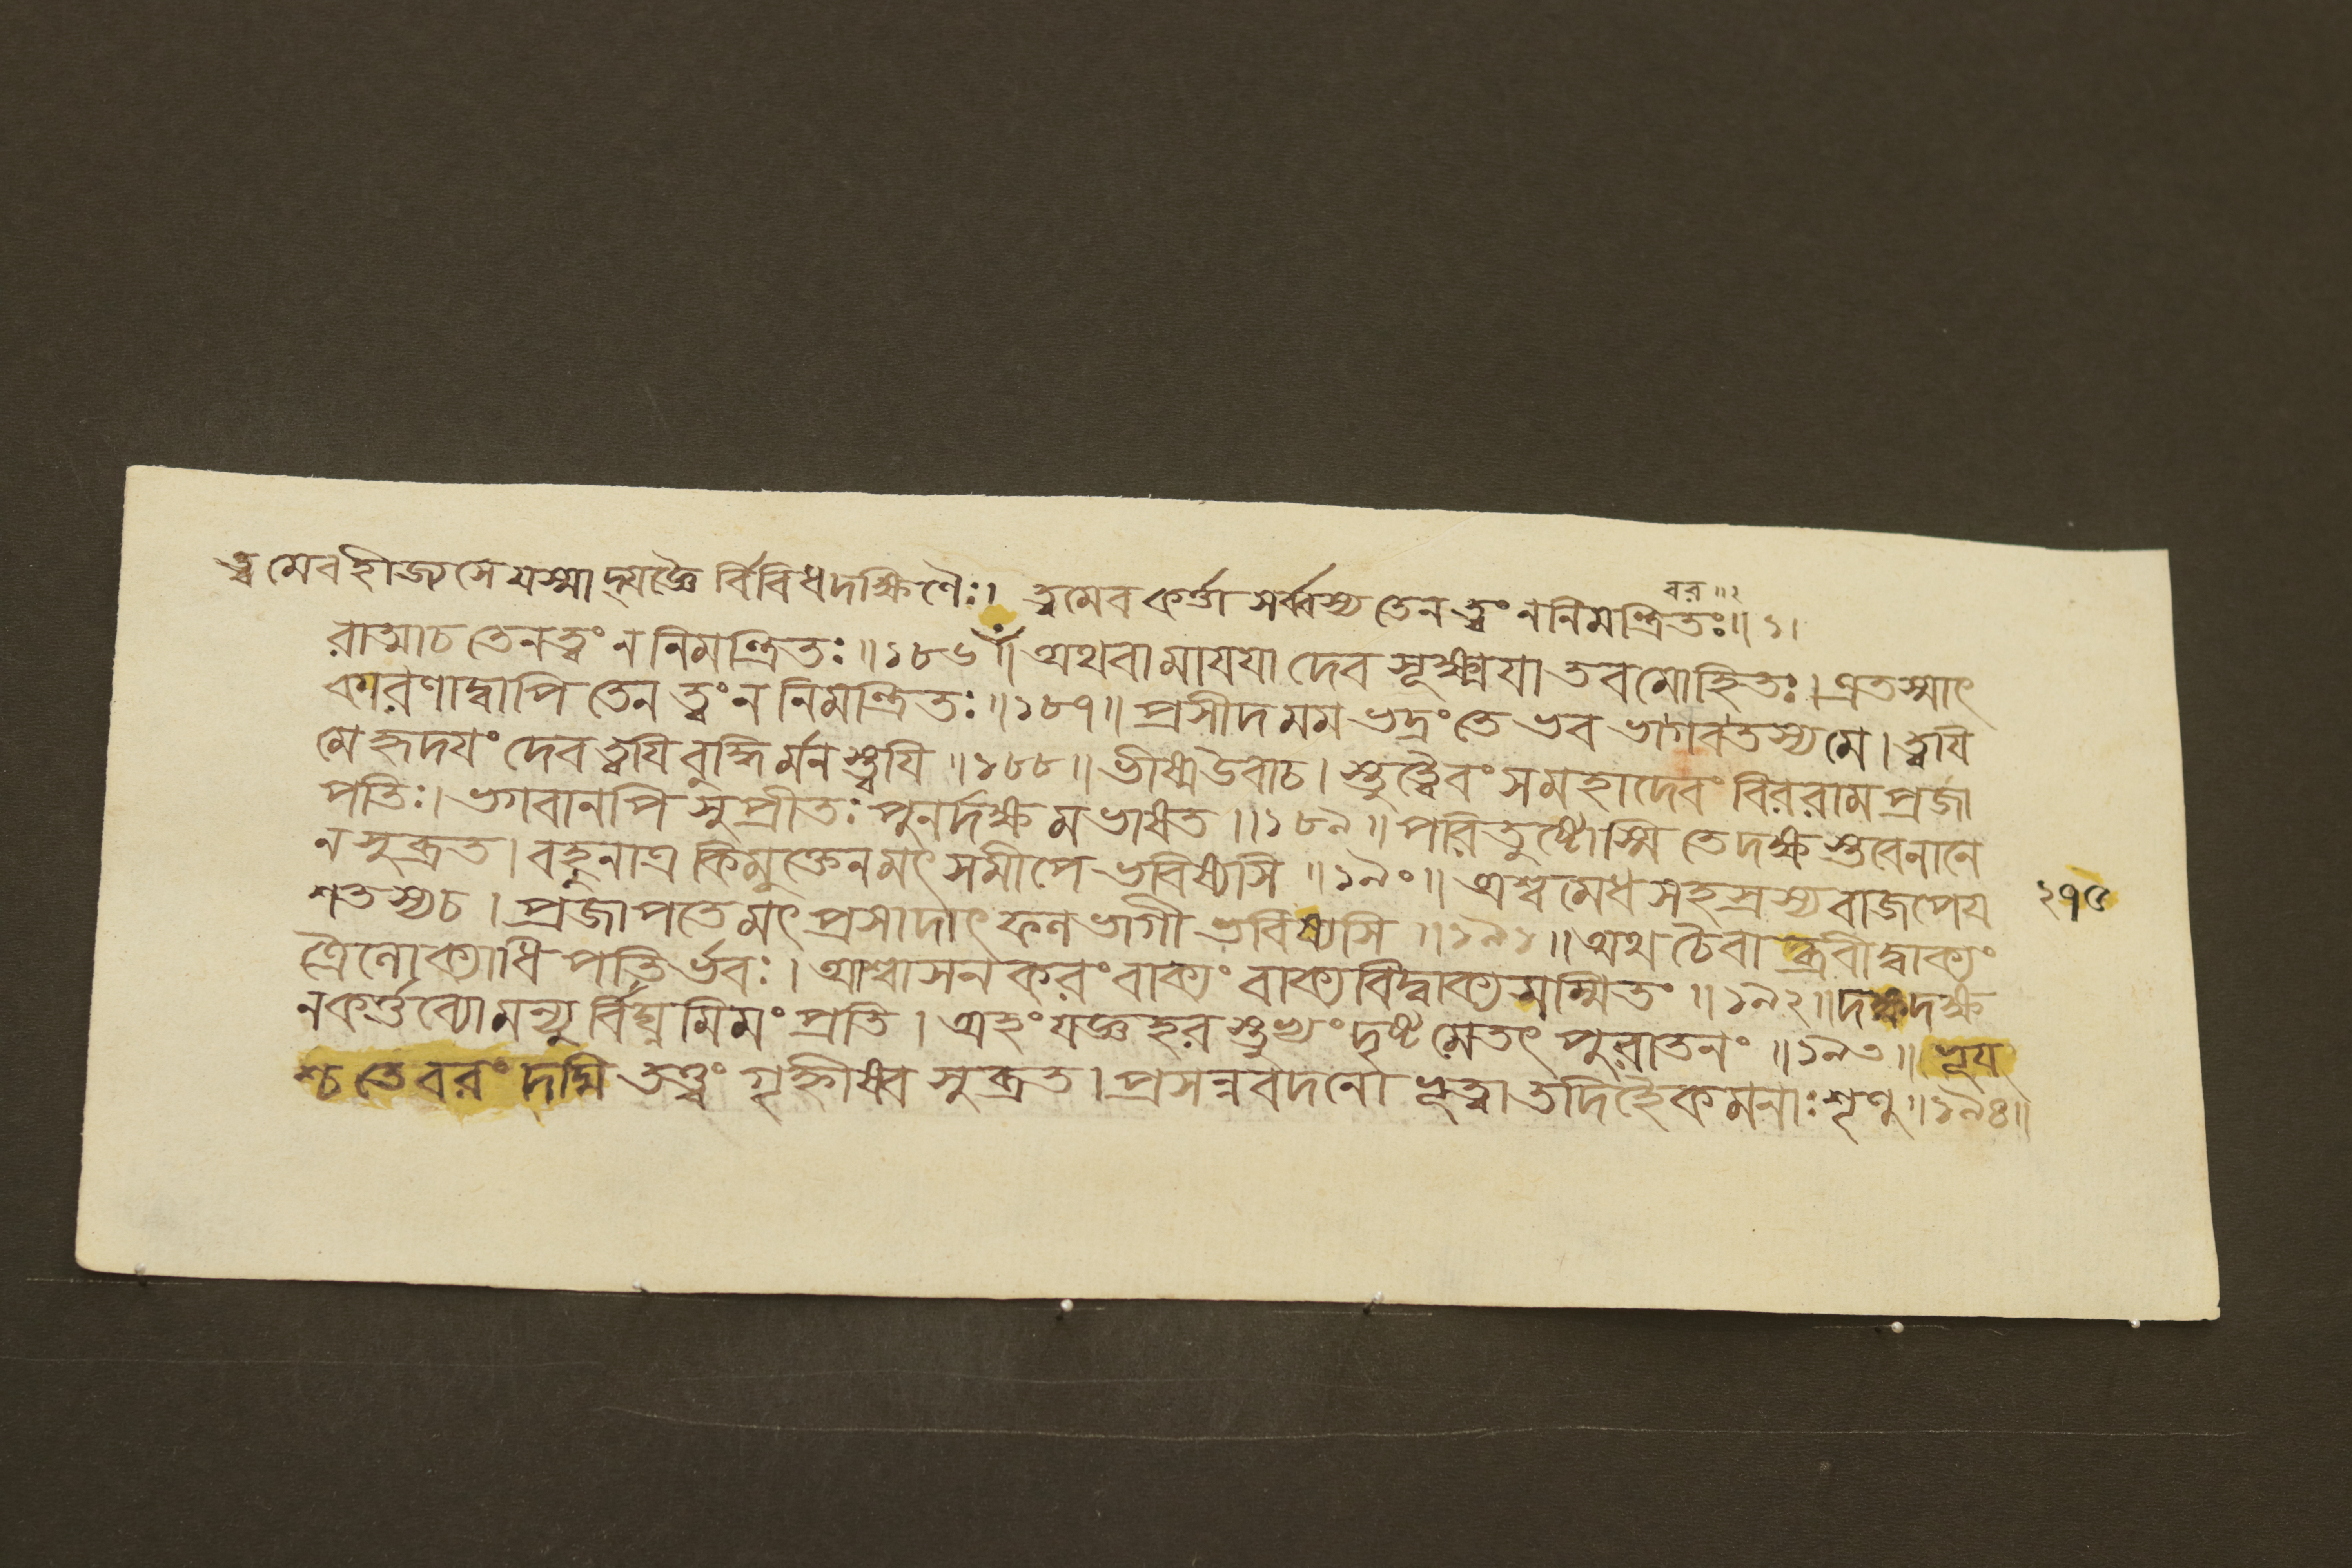 ত্বমেবহীজ্যসে যস্মাদ্যজ্ঞৈর্বিবিধদক্ষিণৈঃ। ত্বমেব কর্ত্তা সর্ব্বস্য তেন ত্বং ন নিমন্ত্রিতঃ॥১।
বর॥২
রাত্মাচ তেন ত্বং ন নিমন্ত্রিতঃ॥১৮৬॥ অথবা মাযযা দেব সূক্ষ্মযা তব মোহিতঃ। এতস্মাৎ
কারণাদ্বাপি তেন ত্বং ন নিমন্ত্রিতঃ॥১৮৭॥ প্রসীদ মম ভদ্রং তে ভব ভাগবতস্য মে। ত্বযি
মে হৃদযং দেব ত্বযি বুদ্ধির্মনস্ত্বযি॥১৮৮॥ ভীষ্মউবাচ। স্তুত্বৈবং স মহাদেবং বিররাম প্রজা
পতিঃ। ভগবানপি সুপ্রীতঃ পুনর্দক্ষমভাষত॥১৮৯॥ পরিতুষ্টোস্মি তে দক্ষ স্তবেনানে
ন সুব্রত। বহুনাত্র কিমুক্তেন মৎসমীপে ভবিষ্যসি॥১৯০॥ অশ্বমেধসহস্রস্য বাজপেয
২৭৫
শতস্যচ। প্রজাপতে মৎপ্রসাদাৎ ফলভাগী ভবিষ্যসি॥১৯১॥ অথ চৈবাব্রবীদ্বাক্যং
ত্রৈলোক্যাধিপতির্ভবঃ। আশ্বাসনকরং বাক্যং বাক্যবিদ্বাক্যসম্মিতং॥১৯২॥ দক্ষদক্ষ
ন কর্ত্তব্যো মন্যুর্বিঘ্নমিমং প্রতি। অহং যজ্ঞহরস্তুভ্যং দৃষ্টমেতৎ পুরাতনং॥১৯৩॥ ভূয
শ্চ তে বরং দদ্মি তঞ্চ ত্বং গৃহ্নীষ্ব সুব্রত। প্রসন্নবদনো ভূত্বা তদিহৈকমনাঃ শৃণু॥১৯৪॥